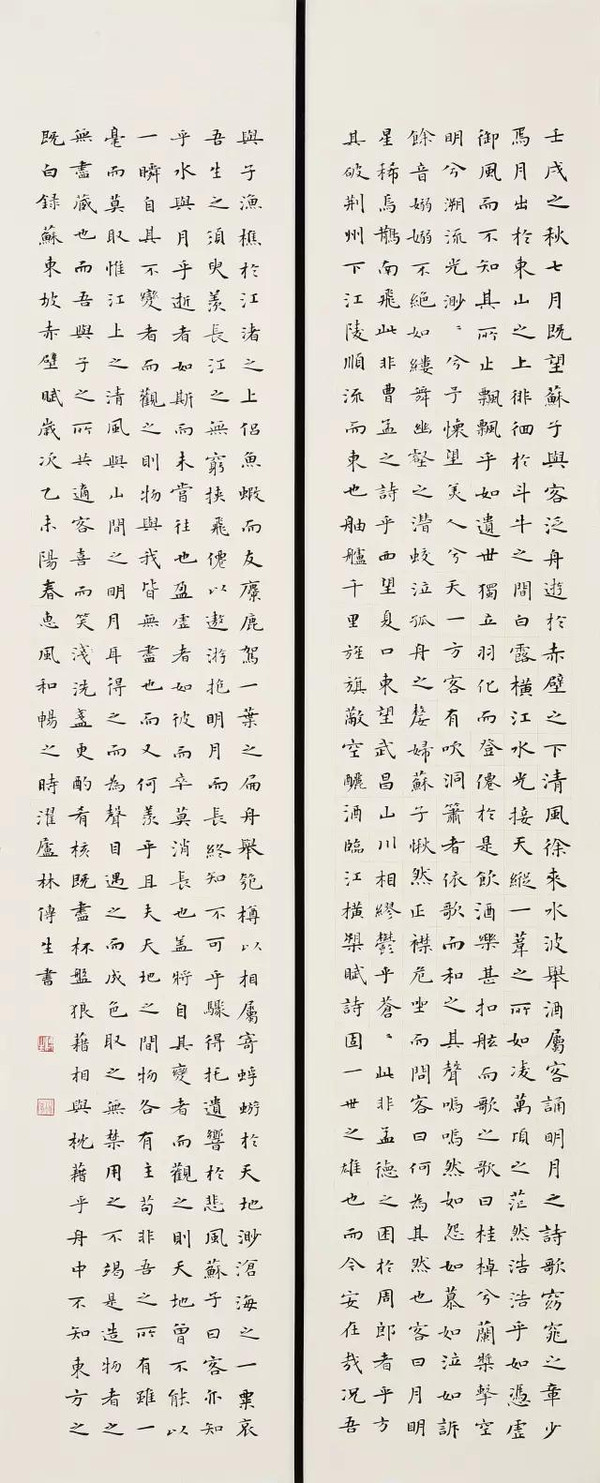 壬戌之秋七月既望蘇子與客泛舟遊於赤壁之下清風徐來水波舉酒屬客誦明月之詩歌窈窕之章少
焉月出於東山之上徘徊於斗牛之間白露橫江水光接天縱一葦之所如凌萬頃之茫然浩浩乎如憑虛
御風而不知其所止飄飄乎如遺世獨立羽化而登僊於是飲酒樂甚扣舷而歌之歌曰桂棹兮蘭槳擊空
明兮溯流光渺〻兮予懷望美人兮天一方客有吹洞簫者依歌而和之其聲嗚嗚然如怨如慕如泣如訴
餘音嫋嫋不絕如縷舞幽壑之潛蛟泣孤舟之嫠婦蘇子愀然正襟危坐而問客曰何為其然也客曰月明
星稀烏鵲南飛此非曹孟之詩乎西望夏口東望武昌山川相繆鬱乎蒼〻此非孟德之困於周郎者乎方
其破荊州下江陵順流而東也舳艫千里旌旗蔽空釃酒臨江橫槊賦詩固一世之雄也而今安在哉況吾
與子漁樵於江渚之上侶魚蝦而友麋鹿駕一葉之扁舟舉匏樽以相屬寄蜉蝣於天地渺滄海之一粟哀
吾生之須臾羨長江之無窮挾飛僊以遨游抱明月而長終知不可乎驟得托遺響於悲風蘇子曰客亦知
乎水與月乎逝者如斯而未嘗往也盈虛者如彼而卒莫消長也蓋將自其變者而觀之則天地曾不能以
一瞬自其不變者而觀之則物與我皆無盡也而又何羨乎且夫天地之間物各有主苟非吾之所有雖一
毫而莫取惟江上之清風與山間之明月耳得之而為聲目遇之而成色取之無禁用之不竭是造物者之
無盡藏也而吾與子之所共適客喜而笑淺洗盞更酌肴核既盡杯盤狼藉相與枕藉乎舟中不知東方之
既白錄蘇東坡赤壁賦歲次乙未陽春惠風和暢之時濯廬林傳生書